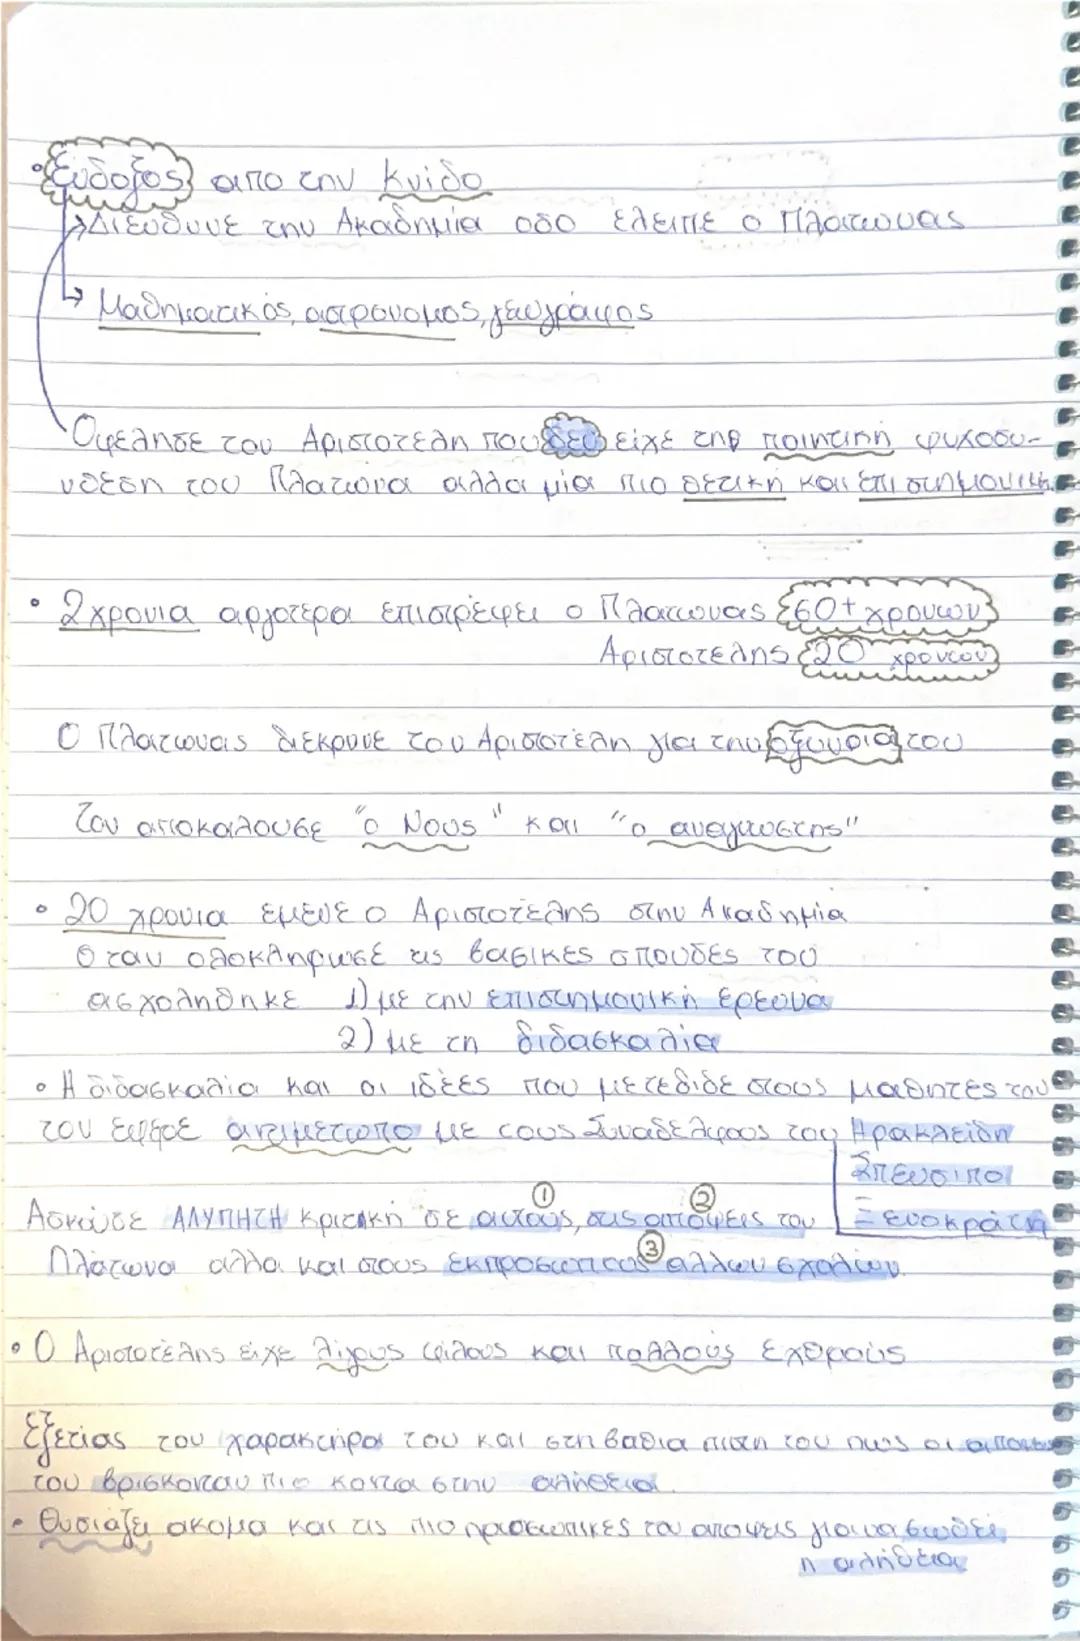 • Εύδοξος απο την Κνίδο
→ Διεύθυνε την Ακαδημία οσο έλειπε ο Πλάτωνας
↳ Μαθηματικός, αστρονομος, γεωγράφος
Οφέλησε τον Αριστοτέλη που δεν είχε την ποιητική ψυχοσυ-
νθεση του Πλατωνα αλλα μία πιο θετική και επιστημονική.
• 2 χρονια αργοτερα επιστρέφει ο Πλατωνας 60+ χρονων
Αριστοτελης 20 χρονων
Ο Πλατωνας διεκρινε τον Αριστοτέλη για την οξυνοια του
Τον αποκαλουσε "ο Νους" και "ο αναγνωστης"
• 20 χρονια έμεινε ο Αριστοτέλης στην Ακαδημία
Οταν ολοκληρωσε τις βασικες σπουδές του
ασχοληθηκε 1) με την επιστημονική έρευνα
2) με τη διδασκαλία
• Η διδασκαλία και οι ιδέες που μετεδιδε στους μαθητες του
τον εφερε αντιμετωπο με τους Συναδελφους του Ηρακλείδη
Σπευσιπο
Ασκούσε ΑΛΥΠΗΤΗ κριτική σε αυτους ①, στις αποψεις ② του Ξενοκράτη
Πλάτωνα αλλα και στους εκπροσωπους ③ αλλων σχολών.
• Ο Αριστοτέλης είχε λίγους φίλους και πολλούς εχθρούς
Εξετίας του χαρακτήρα του και στη βαθια πιστη του πως οι αποψεις
του βρισκονταν πιο κοντα στην αλήθεια.
• Θυσιάζει ακομα και τις πιο προσωπικες του αποψεις για να σωθεί
η αλήθεια